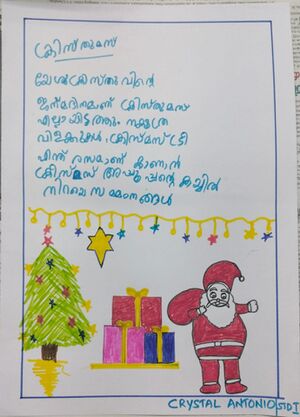 ക്രിസ്തുമസ്
യേശുക്രിസ്തുവിന്റെ
ജന്മദിനമാണ് ക്രിസ്തുമസ്
എല്ലായിടത്തും നക്ഷത്ര
വിളക്കുകൾ, ക്രിസ്മസ് ട്രീ
എന്ത് രസമാണ് കാണാൻ
ക്രിസ്മസ് അപ്പൂപ്പന്റെ കയ്യിൽ
നിറയെ സമ്മാനങ്ങൾ
CRYSTAL ANTONIO STD I